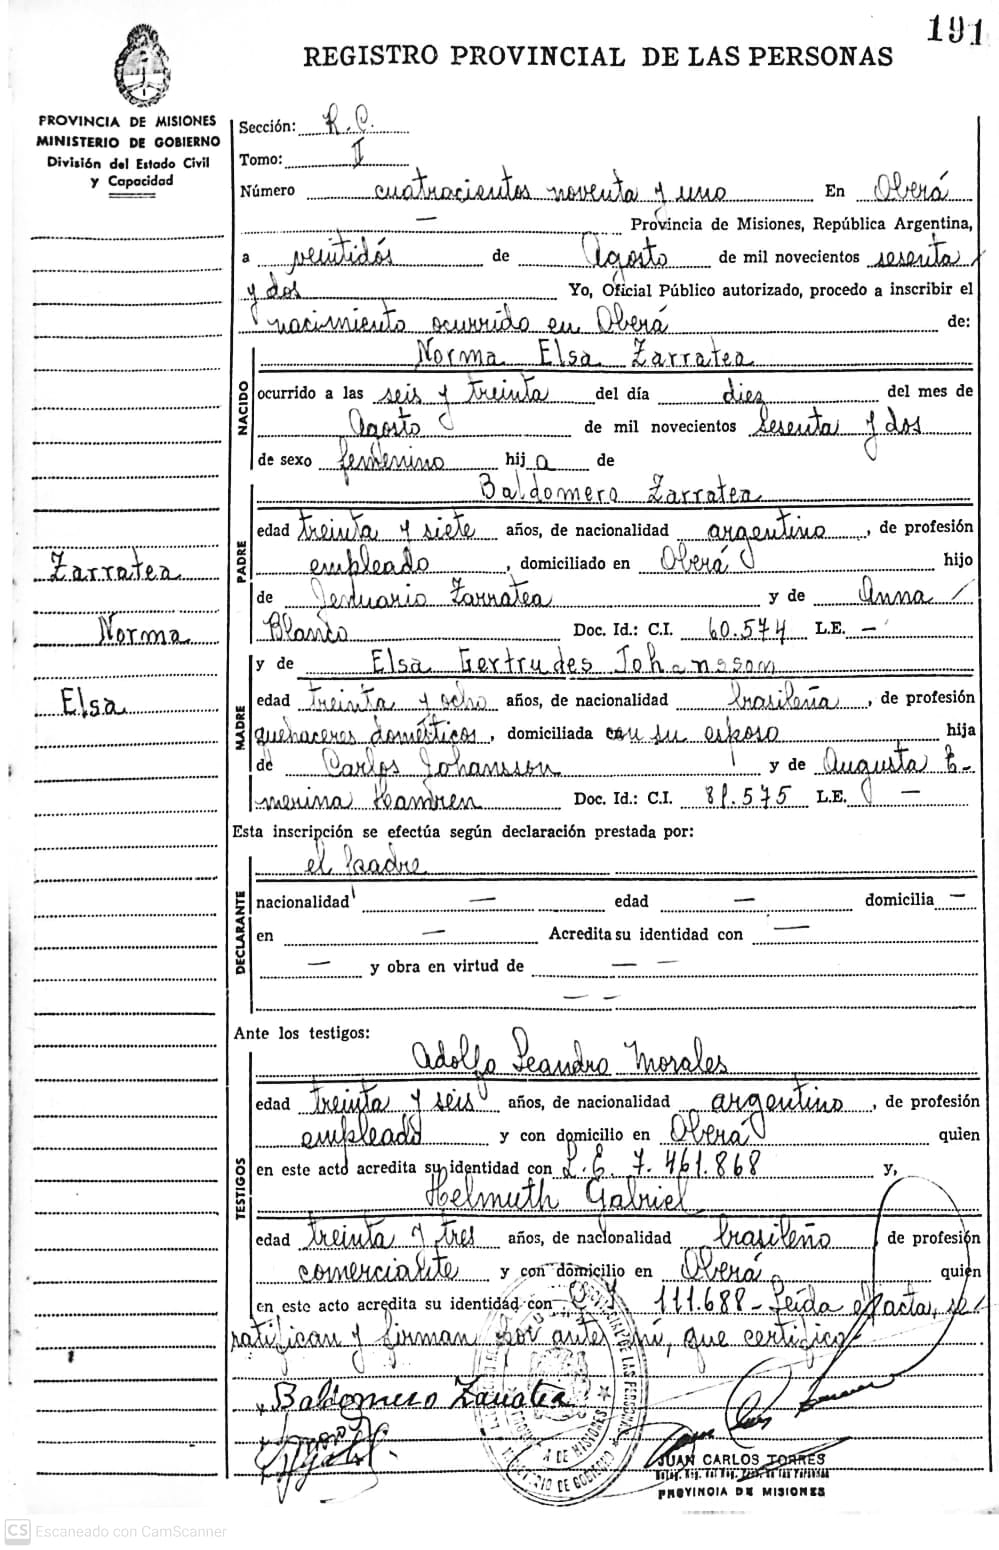 191
REGISTRO PROVINCIAL DE LAS PERSONAS
PROVINCIA DE MISIONES
MINISTERIO DE GOBIERNO
División del Estado Civil
y Capacidad
Sección: R.C.
Tomo: I
Número cuatrocientos noventa y uno En Oberá
— Provincia de Misiones, República Argentina,
a veintidós de Agosto de mil novecientos sesenta
y dos Yo, Oficial Público autorizado, procedo a inscribir el
nacimiento ocurrido en Oberá de:
Norma Elsa Zarratea
NACIDO
ocurrido a las seis y treinta del día diez del mes de
Agosto de mil novecientos sesenta y dos
de sexo femenino hija de
Baldomero Zarratea
PADRE
edad treinta y siete años, de nacionalidad argentino, de profesión
empleado, domiciliado en Oberá hijo
de Zarratea y de Anna
Blanco Doc. Id.: C.I. 60.574 L.E. —
Zarratea
Norma
Elsa
y de Elsa Gertrudes Johansson
MADRE
edad treinta y ocho años, de nacionalidad brasileña, de profesión
quehaceres domésticos, domiciliada con su esposo hija
de Carlos Johansson y de Augusta E-
menina Doc. Id.: C.I. 81.575 L.E. —
Esta inscripción se efectúa según declaración prestada por:
el padre
DECLARANTE
nacionalidad — edad — domicilia —
en — Acredita su identidad con —
— y obra en virtud de — —
— —
Ante los testigos:
Adolfo Leandro Morales
TESTIGOS
edad treinta y seis años, de nacionalidad argentino, de profesión
empleado y con domicilio en Oberá quien
en este acto acredita su identidad con L.E. 7.461.868 y,
Helmuth Gabriel
edad treinta y tres años, de nacionalidad brasileño de profesión
comerciante y con domicilio en Oberá quien
en este acto acredita su identidad con 111.688 - Leída el acta, se
ratifican y firman por ante mí, que certifico.
Baldomero Zarratea
JUAN CARLOS TORRES
PROVINCIA DE MISIONES
CS Escaneado con CamScanner